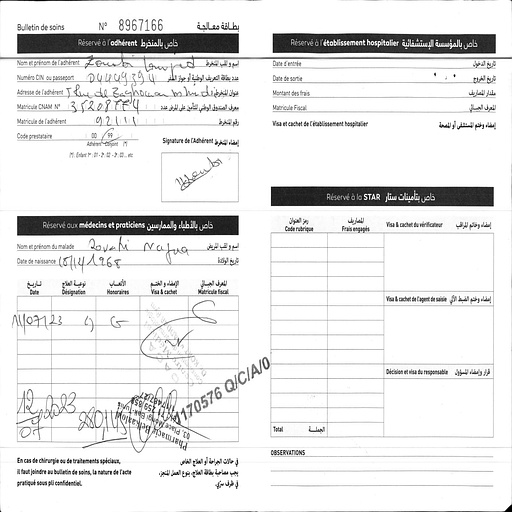 Bulletin de soins N° 8967166 بطاقة معالجة
Réservé à l'adhérent خاص بالمنخرط
Nom et prénom de l'adhérent Zouabi إسم و لقب المنخرط
Numéro CIN ou passeport 04449394 عدد بطاقة التعريف الوطنية أو جواز السفر
Adresse de l'adhérent عنوان المنخرط
Matricule CNAM N° معرف الصندوق الوطني للتأمين على المرض عدد
Matricule de l'adhérent 92111 رقم المنخرط
Code prestataire 00 99
Adhérent Conjoint (*)
(*) : Enfant 1er : 01 - 2e : 02 - 3e : 03 ... etc
Signature de l'Adhérent إمضاء المنخرط
Zouabi
Réservé aux médecins et praticiens خاص بالأطباء والممارسين
Nom et prénom du malade Zouabi Najoua اسم و لقب المريض
Date de naissance 1968 تاريخ الولادة
تاريخ نوعية العلاج الأتعاب الإمضاء و الختم المعرف الجبائي
Date Désignation Honoraires Visa & cachet Matricule fiscal
11/07/23 C G
12/07/2023
1170576 Q/C/A/0
En cas de chirurgie ou de traitements spéciaux,
il faut joindre au bulletin de soins, la nature de l'acte
pratiqué sous pli confidentiel.
في حالات الجراحة أو العلاج الخاص
يجب مصاحبة بطاقة العلاج، بنوع العمل المنجز،
في ظرف سرّي.
Réservé à l'établissement hospitalier خاص بالمؤسسة الإستشفائية
Date d'entrée تاريخ الدخول
Date de sortie تاريخ الخروج
Montant des frais مقدار المصاريف
Matricule Fiscal المعرف الجبائي
Visa et cachet de l'établissement hospitalier إمضاء وختم المستشفى أو المصحة
Réservé à la STAR خاص بتأمينات ستار
رمز العنوان المصاريف
Code rubrique Frais engagés
Visa & cachet du vérificateur إمضاء وخاتم المراقب
Visa & cachet de l'agent de saisie إمضاء وختم الضبط الآلي
Décision et visa du responsable قرار وإمضاء المسؤول
Total الجملة
OBSERVATIONS